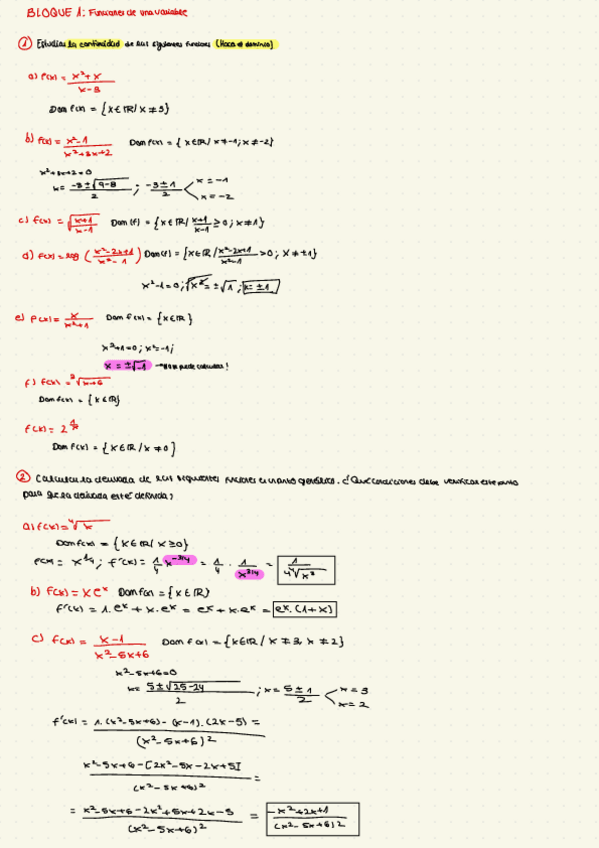 BLOQUE 1: Funciones de una variable
① Estudiar la continuidad de las siguientes funciones (Hacer el dominio)
a) f(x) = x²+x / x-3
Dom f(x) = {x∈ℝ / x≠3}
b) f(x) = x²-1 / x²+3x+2 Dom f(x) = {x∈ℝ / x≠-1; x≠-2}
x²+3x+2=0
x = -3±√9-8 / 2 ; -3±1 / 2 < x=-1
x=-2
c) f(x) = √x+1 / x-1 Dom (f) = {x∈ℝ / x+1 / x-1 ≥0; x≠1}
d) f(x) = log (x²-2x+1 / x²-1) Dom (f) = {x∈ℝ / x²-2x+1 / x²-1 >0; x≠±1}
x²-1=0; √x² = ±√1; x=±1
e) f(x) = x / x²+1 Dom f(x) = {x∈ℝ}
x²+1=0; x²=-1;
x = ±√-1 → No se puede calcular!
f) f(x) = ³√x+6
Dom f(x) = {x∈ℝ}
f(x) = 2^1/x
Dom f(x) = {x∈ℝ / x≠0}
② Calcula la derivada de las siguientes funciones en un punto genérico. ¿Qué condiciones debe verificar este punto
para que la derivada esté definida?
a) f(x) = ⁴√x
Dom f(x) = {x∈ℝ / x≥0}
f(x) = x^1/4; f'(x) = 1/4 x^-3/4 = 1/4 · 1/x^3/4 = 1 / 4⁴√x³
b) f(x) = x e^x Dom f(x) = {x∈ℝ}
f'(x) = 1·e^x + x·e^x = e^x + x·e^x = e^x·(1+x)
c) f(x) = x-1 / x²-5x+6 Dom f(x) = {x∈ℝ / x≠3, x≠2}
x²-5x+6=0
x = 5±√25-24 / 2 ; x = 5±1 / 2 < x=3
x=2
f'(x) = 1·(x²-5x+6) - (x-1)·(2x-5) / (x²-5x+6)² =
x²-5x+6-[2x²-5x-2x+5] / (x²-5x+6)² =
= x²-5x+6-2x²+5x+2x-5 / (x²-5x+6)² = -x²+2x+1 / (x²-5x+6)²